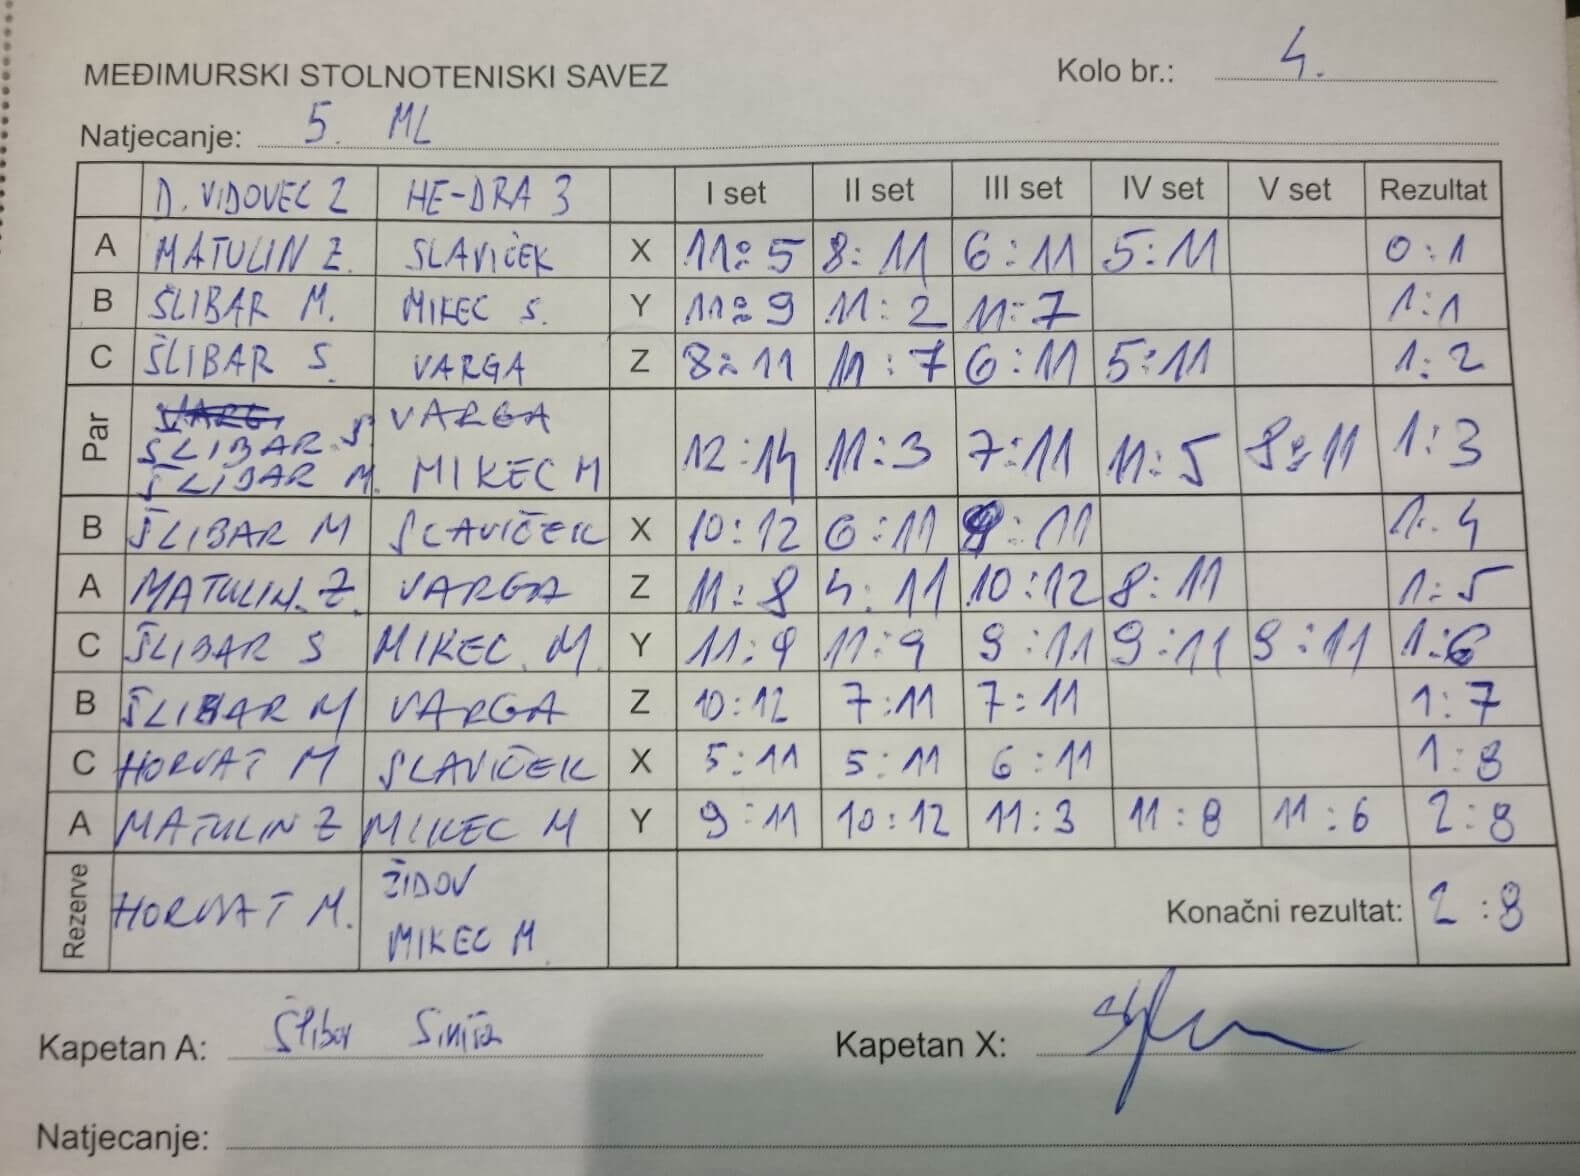 MEĐIMURSKI STOLNOTENISKI SAVEZ Kolo br.: 4.
Natjecanje: 5. ML
D. VIDOVEC 2 HE-DRA 3 I set II set III set IV set V set Rezultat
A MATULIN Z. SLAVIČEK X 11:5 8:11 6:11 5:11 0:1
B ŠLIBAR M. MIKEC S. Y 11:9 11:2 11:7 1:1
C ŠLIBAR S. VARGA Z 8:11 11:7 6:11 5:11 1:2
Par ŠLIBAR S VARGA 12:14 11:3 7:11 11:5 8:11 1:3
ŠLIBAR M. MIKEC M
B ŠLIBAR M SLAVIČEK X 10:12 6:11 :11 1:4
A MATULIN. Z. VARGA Z 11:8 4:11 10:12 8:11 1:5
C ŠLIBAR S MIKEC. M. Y 11:9 11:9 9:11 9:11 9:11 1:6
B ŠLIBAR M VARGA Z 10:12 7:11 7:11 1:7
C HORVAT M SLAVIČEK X 5:11 5:11 6:11 1:8
A MATULIN Z MIKEC M Y 9:11 10:12 11:3 11:8 11:6 2:8
Rezerve HORVAT M. ŽIDOV Konačni rezultat: 2:8
MIKEC M
Kapetan A: Šlibar Siniša Kapetan X:
Natjecanje: